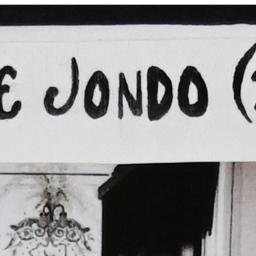 E JONDO (